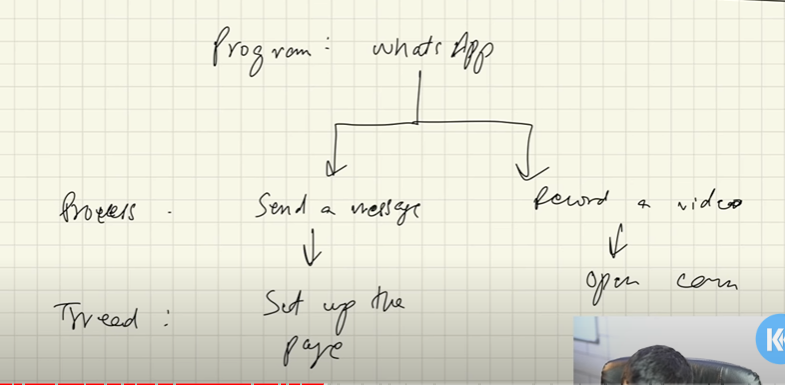 Program: whatsApp
Process. Send a message Record a video
Thread: Set up the Open cam
page
K